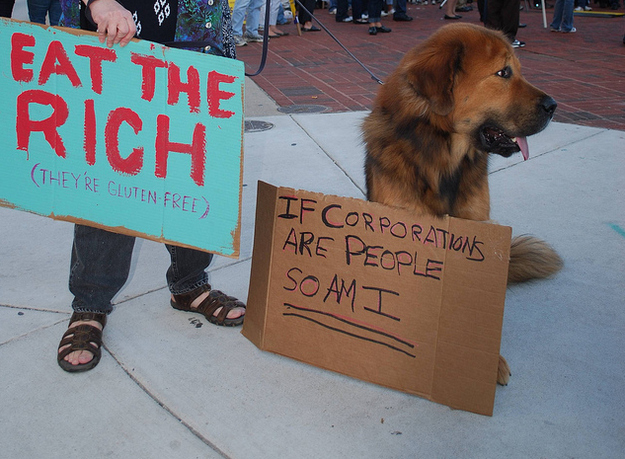 EAT THE
RICH
(THEY'RE GLUTEN-FREE)
IF CORPORATIONS
ARE PEOPLE
SO AM I